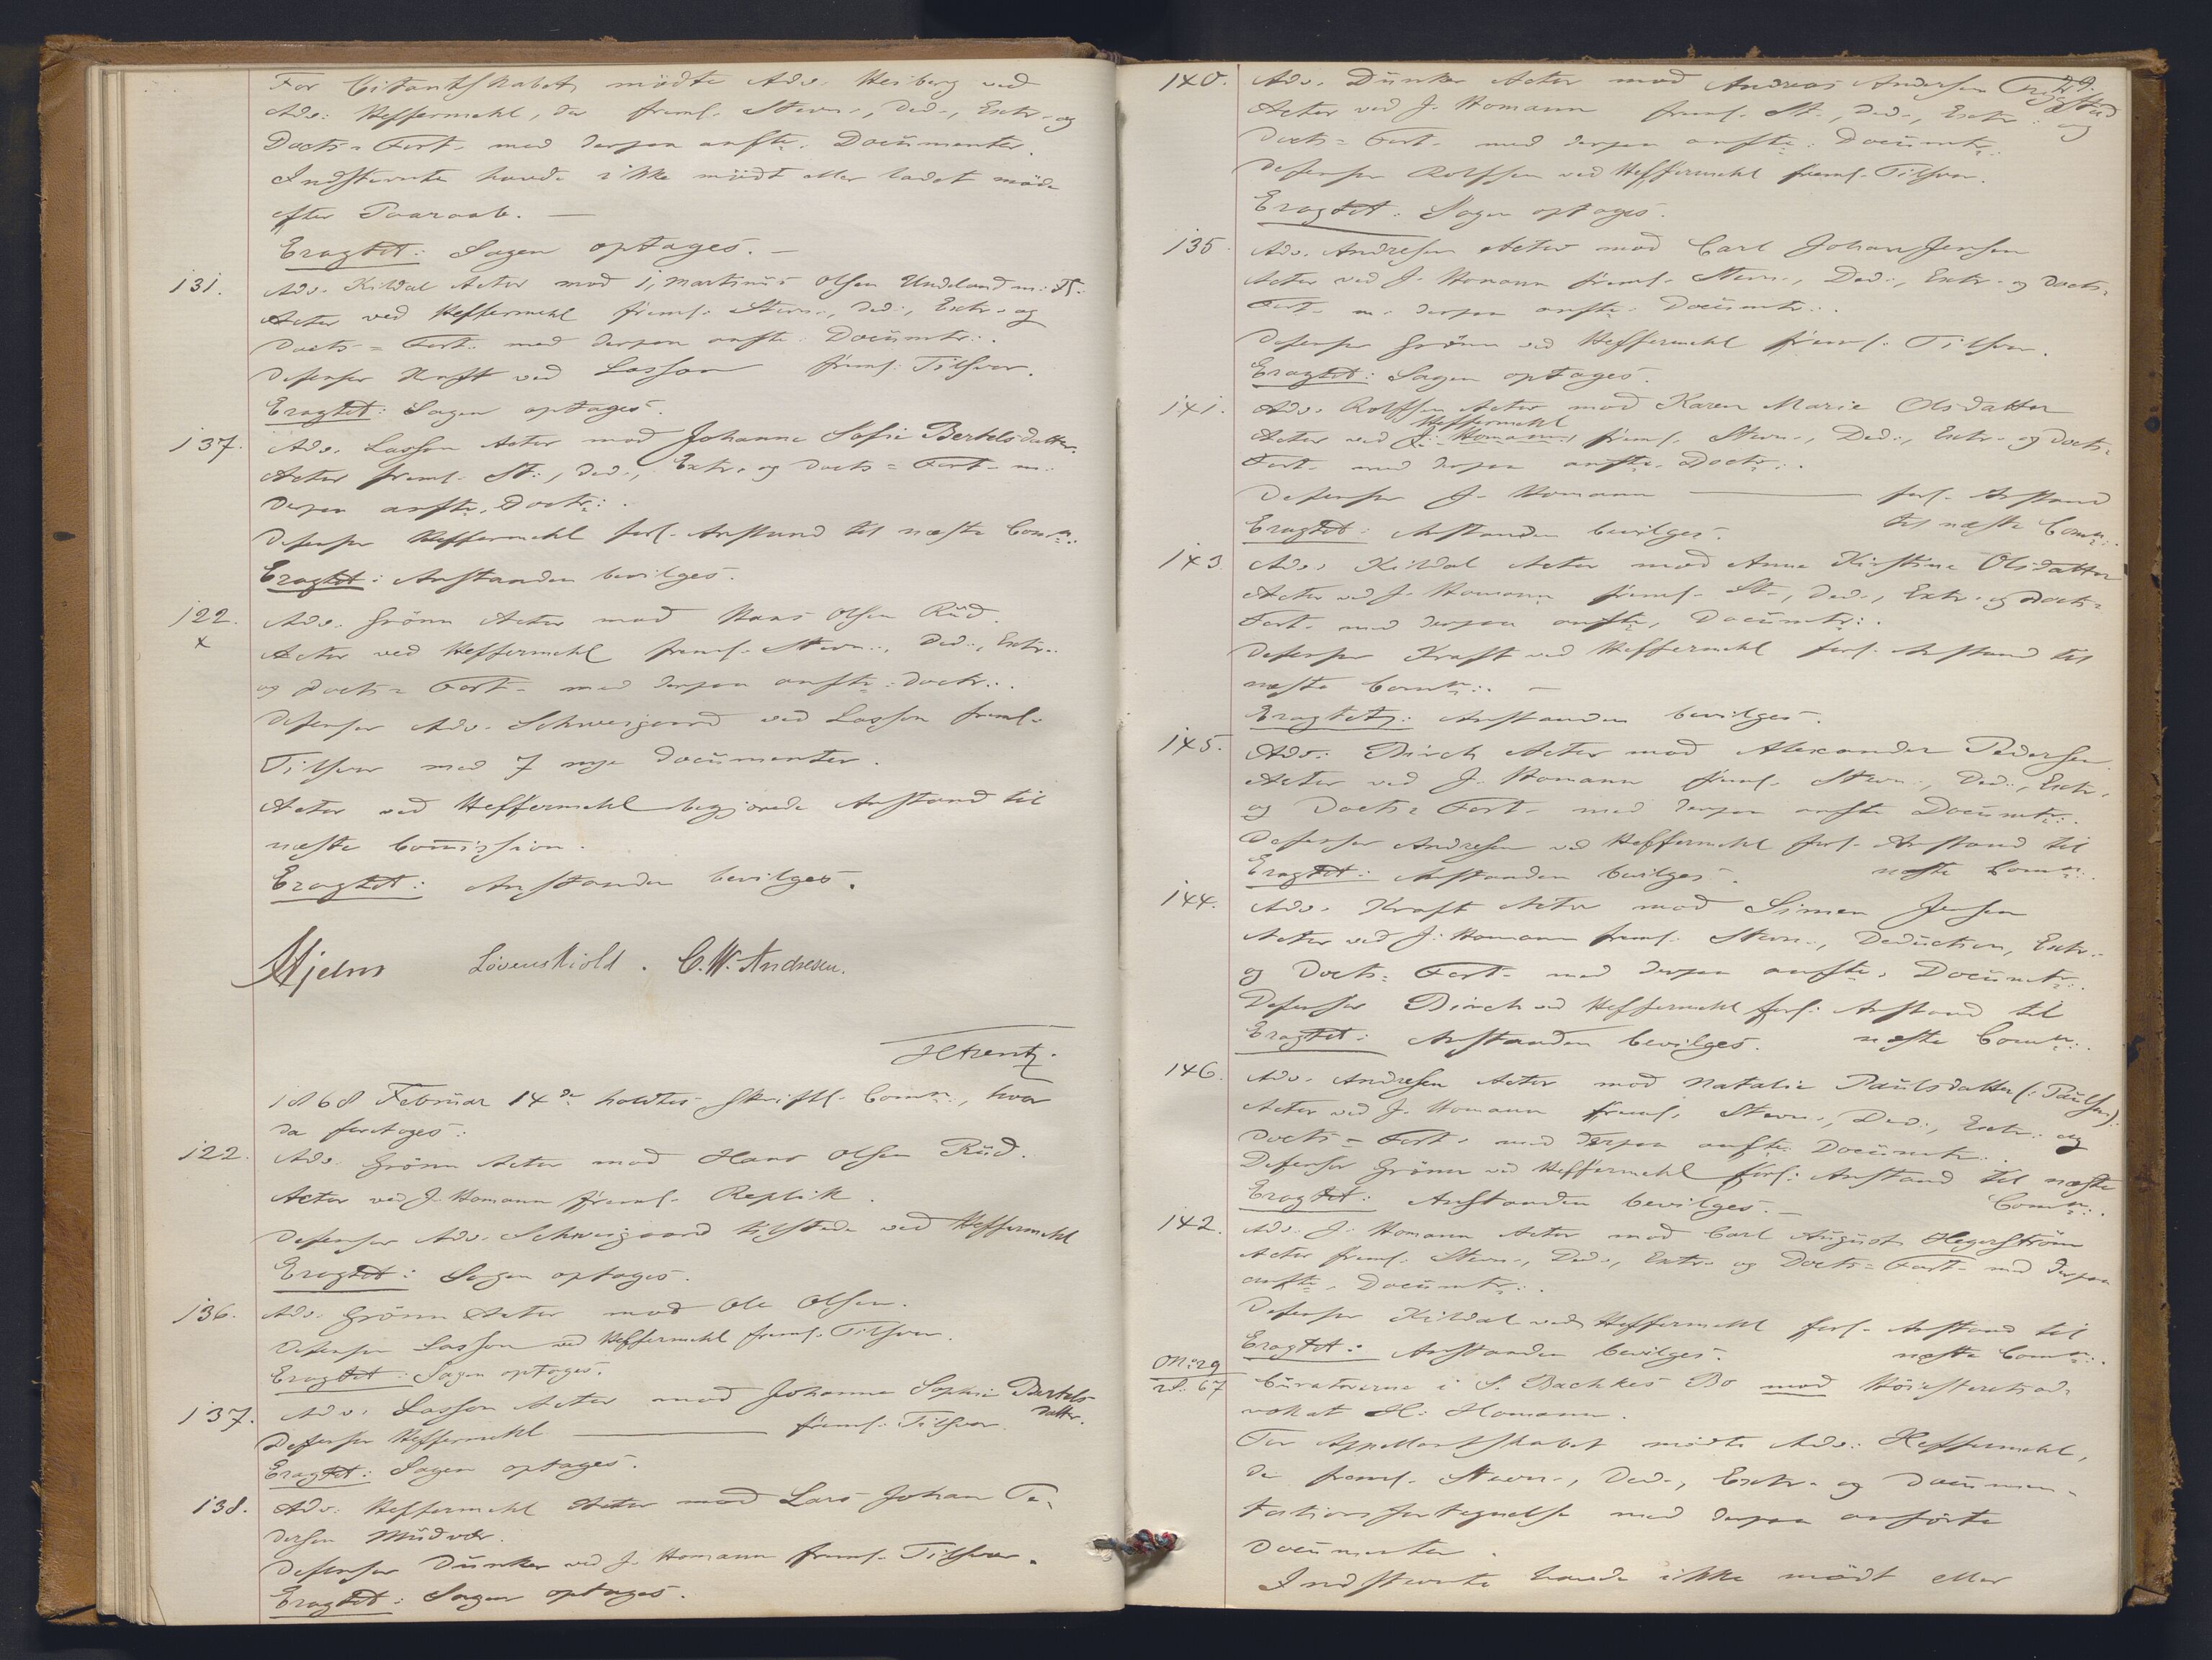 For Citantskabet mødte Adv. Heiberg ved
Adv: Heffermehl, der freml. Stevn., Ded., Extr. og
Docts = Fort. med derpaa anfte. Documenter.
Indstevnte havde ikke mødt eller ladet møde
efter Paaraab. —
Eragtet: Sagen optages. —
131. Adv. Kildal Actor mod 1, Martinus Olsen Undeland m: Fl.
Actor ved Heffermehl freml. Stevn., Ded., Extr. og
Docts = Fort. med derpaa anfte. Documtr:.
Defensor Kraft ved Lasson freml. Tilsvar.
Eragtet: Sagen optages.
137. Adv. Lasson Actor mod Johanne Sofie Bertelsdatter.
Actor freml. St:, Ded., Extr. og Docts = Fort. m.
derpaa anfte, Doctr:.
Defensor Heffermehl forl. Anstand til næste Comn:.
Eragtet: Anstanden bevilges.
122. Adv. Grönn Actor mod Hans Olsen Rüd.
x Actor ved Heffermehl freml. Stevn., Ded:, Extr.
og Docts = Fort. med derpaa anfte: Doctr:.
Defensor Adv. Schweigaard ved Lasson freml.
Tilsvar med 7 nye Documenter.
Actor ved Heffermehl begjærede Anstand til
næste Commission.
Eragtet: Anstanden bevilges.
Hjelm Løvenskiold. C. W. Andresen.
1868 Februar 14de holdtes skriftl. Comn:, hvor
da foretoges:
122. Adv. Grönn Actor mod Hans Olsen Rüd.
Actor ved J. Homann freml. Replik.
Defensor Adv. Schweigaard tilstede ved Heffermehl
Eragtet: Sagen optages.
136. Adv. Grönn Actor mod Ole Olsen.
Defensor Lasson ved Heffermehl freml. Tilsvar.
Eragtet: Sagen optages.
137. Adv. Lasson Actor mod Johanne Sophie Bertels-
datter.
Defensor Heffermehl — freml. Tilsvar.
Eragtet: Sagen optages.
138. Adv. Heffermehl Actor mod Lars Johan Pe-
dersen
Defensor Dünker ved J. Homann freml. Tilsvar.
Eragtet: Sagen optages.
29.
140. Adv. Dünker Actor mod Andreas Andersen
Actor ved J. Homann freml. St., Ded., Extr. og
Docts = Fort. med derpaa anfte: Documtr:.
Defensor Rolfsen ved Heffermehl freml. Tilsvar.
Eragtet: Sagen optages.
135. Adv. Andresen Actor mod Carl Johan Jensen
Actor ved J. Homann freml. Stevn., Ded:, Extr. og Docts =
Fort. m. derpaa anfte: Documtr:.
Defensor Grönn ved Heffermehl freml. Tilsvar.
Eragtet: Sagen optages.
141. Adv. Rolfsen Actor mod Karen Marie Olsdatter
Heffermehl
Actor ved J. Homann freml. Stevn., Ded:, Extr. og Docts =
Fort. med derpaa anfte. Doctr:.
Defensor J. Homann — forl. Anstand
til næste Comn:.
Eragtet: Anstanden bevilges.
143. Adv. Kildal Actor mod Anna Kirstine Olsdatter
Actor ved J. Homann freml. St., Ded., Extr. og Docts =
Fort. med derpaa anfte, Documtr:.
Defensor Kraft ved Heffermehl forl. Anstand til
næste Comn:. —
Eragtet: Anstanden bevilges.
145. Adv: Birch Actor mod Alexander Pedersen
Actor ved J. Homann freml. Stevn., Ded:, Extr.
og Docts = Fort. med derpaa anfte Documtr:.
Defensor Andresen ved Heffermehl forl. Anstand til
næste Comn:.
Eragtet: Anstanden bevilges.
144. Adv. Kraft Actor mod Simen Jensen
Actor ved J. Homann freml. Stevn., Deduction, Extr.
og Docts = Fort. med derpaa anfte, Documtr:.
Defensor Birch ved Heffermehl forl. Anstand til
næste Comn:.
Eragtet: Anstanden bevilges.
146. Adv. Andresen Actor mod Natalie Paulsdatter (: Paulsen).
Actor ved J. Homann freml. Stevn., Ded:, Extr. og
Docts = Fort. med derpaa anfte Documtr.
Defensor Grönn ved Heffermehl forl. Anstand til næste
Comn:.
Eragtet: Anstanden bevilges. —
142. Adv. J. Homann Actor mod Carl August Hegerström
Actor freml. Stevn., Ded., Extr. og Docts = Fort. med derpaa
anfte, Documtr:.
Defensor Kildal ved Heffermehl forl. Anstand til
næste Comn:.
Eragtet: Anstanden bevilges.
No: 29
67 Curatorerne i S. Bachkes Bo mod Höiesteretsad-
vokat H. Homann.
For Appellantskabet mødte Adv: Heffermehl,
der freml. Stevn., Ded., Extr. og Documen-
tationsfortegnelse med derpaa anførte
Documenter.
Indstevnte havde ikke mødt eller